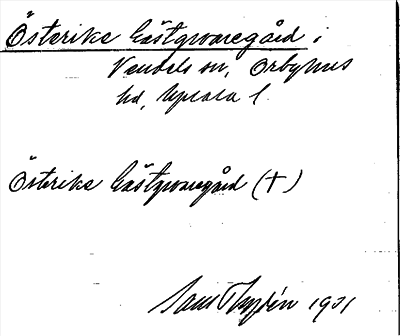 Österike Gästgivaregård i
Vendels sn, Örbyhus
hd, Uppsala l.
Österike Gästgivaregård (†)
1931